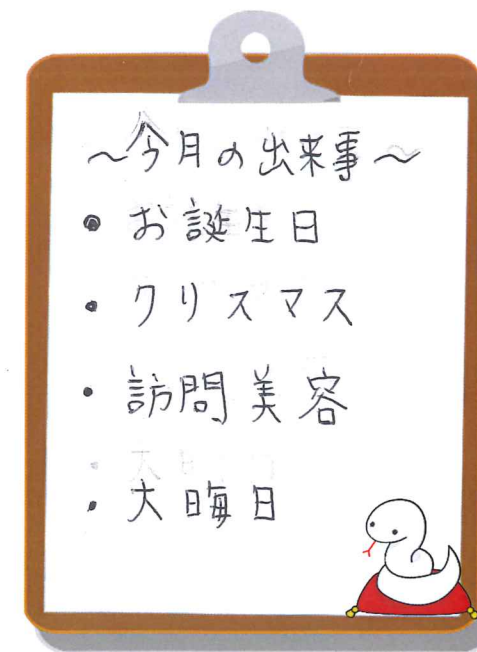 ～今月の出来事～
・お誕生日
・クリスマス
・訪問美容
・大晦日